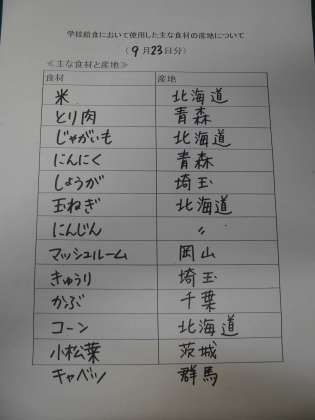 学校給食において使用した主な食材の産地について
(9月23日分)
≪主な食材と産地≫
食材 産地
米 北海道
とり肉 青森
じゃがいも 北海道
にんにく 青森
しょうが 埼玉
玉ねぎ 北海道
にんじん 〃
マッシュルーム 岡山
きゅうり 埼玉
かぶ 千葉
コーン 北海道
小松菜 茨城
キャベツ 群馬